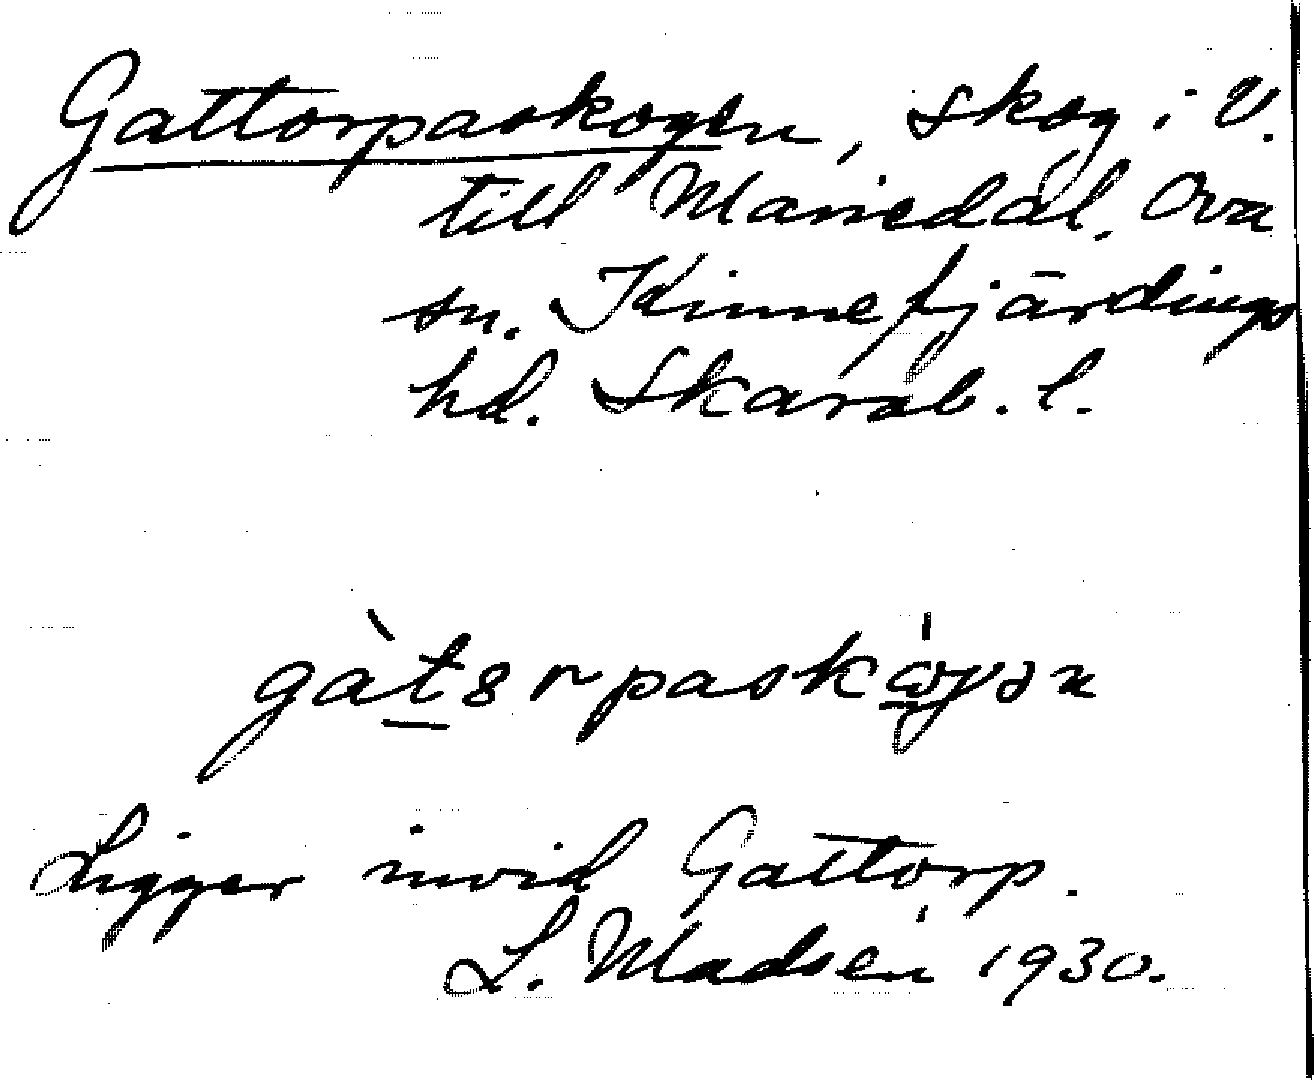 Gattorpaskogen, skog i V.
till Mariedal. Ova
sn. Kinnefjärdings
hd. Skarab. l.
gàt
Ligger invid Gattorp.
L. Madsén 1930.